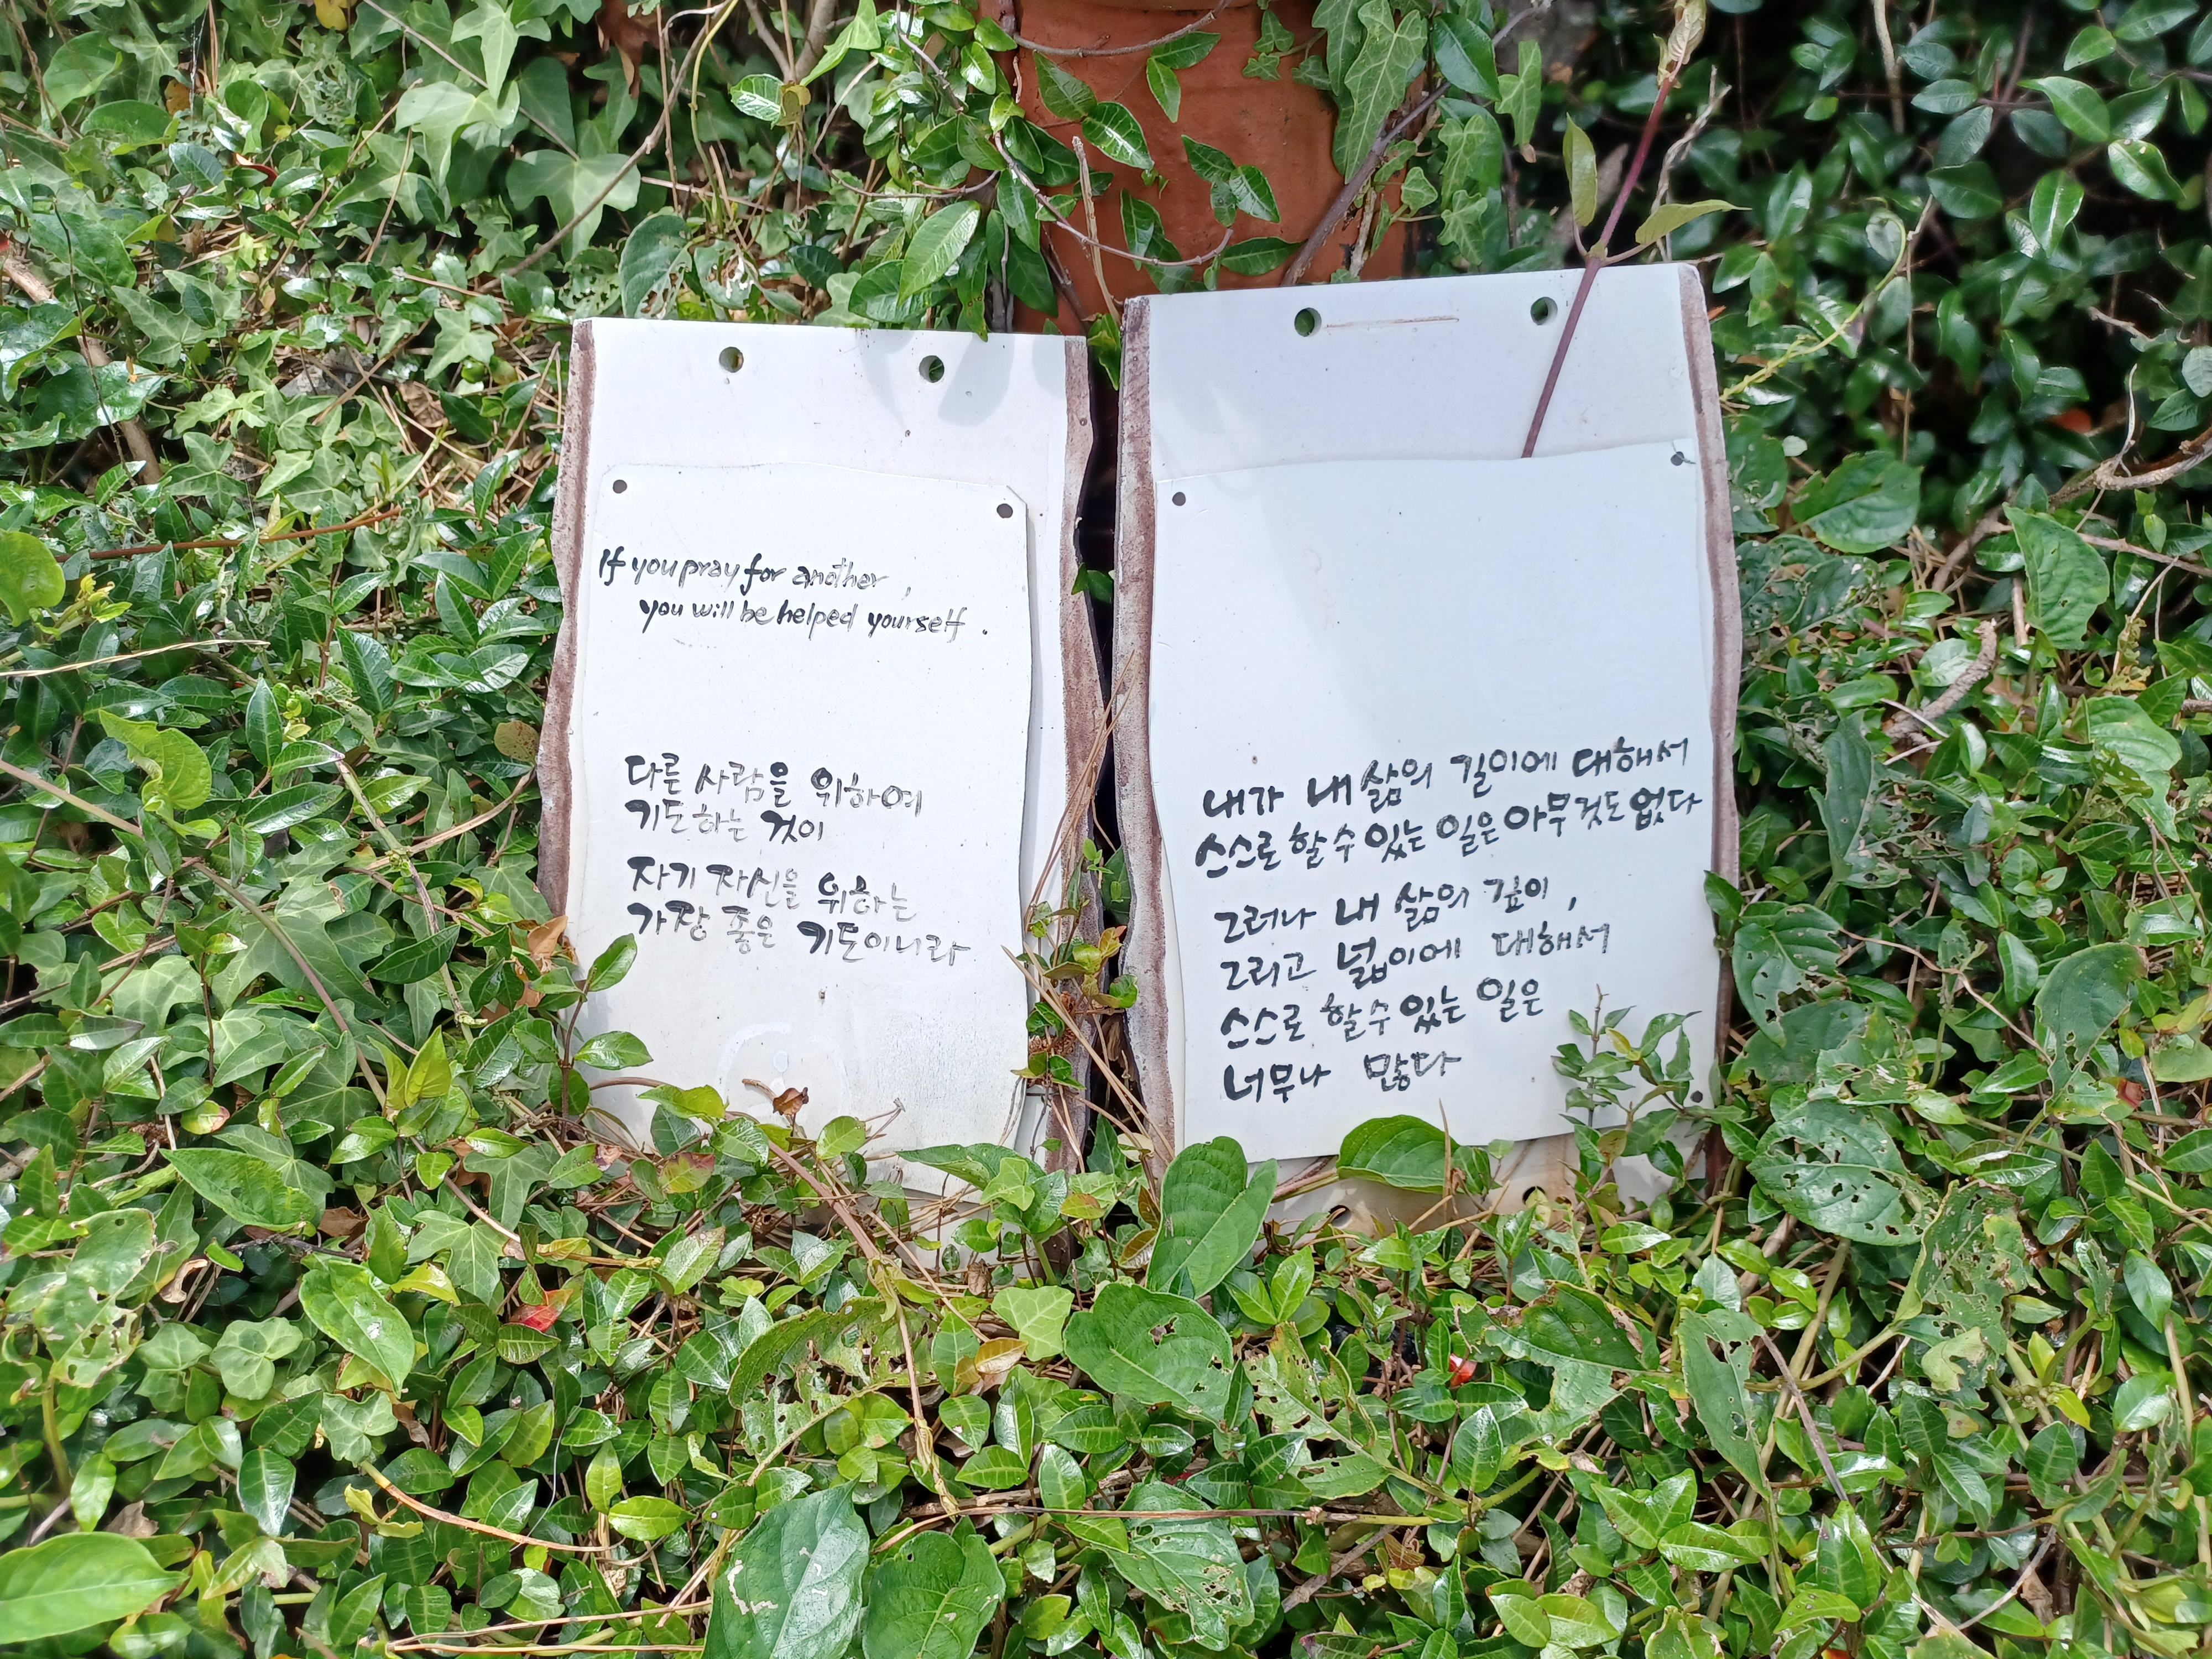 If you pray for another,
you will be helped yourself.
다른 사람을 위하여
기도하는 것이
자기 자신을 위하는
가장 좋은 기도이니라
내가 내 삶의 길이에 대해서
스스로 할 수 있는 일은 아무것도 없다
그러나 내 삶의 깊이,
그리고 넓이에 대해서
스스로 할 수 있는 일은
너무나 많다